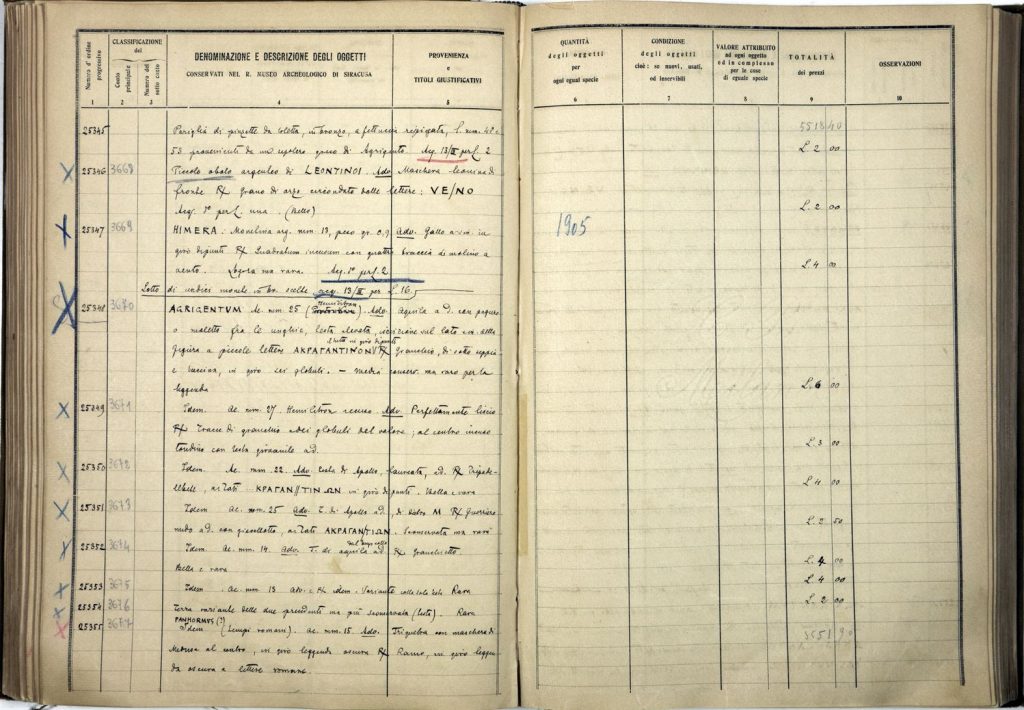 Numero d'ordine progressivo
CLASSIFICAZIONE
del
Costo principale
Numero del sotto costo
DENOMINAZIONE E DESCRIZIONE DEGLI OGGETTI
CONSERVATI NEL R. MUSEO ARCHEOLOGICO DI SIRACUSA
PROVENIENZA
e
TITOLI GIUSTIFICATIVI
1 2 3 4 5
25345 Pariglia di pinzette da toletta, in bronzo, a fettuccia ripiegata, l. mm. 48 e
53 provenienti da un sepolcro greco di Agrigento. Acq. 13/II per L. 2
25346 3668 Piccolo obolo argenteo di LEONTINOI. Adv. Maschera leonina di
fronte R/ Grano di orzo circondato dalle lettere: VE/NO
Acq. 1° per L. una. (Bello)
25347 3669 HIMERA: Monetina arg. mm 13, peso gr. 0,9. Adv. Gallo a sin. in
giro di punti R/ Quadratum incusum con quattro braccia di molino a
vento. Logora ma rara. Acq. 1° per L. 2
Lotto di undici monete in br. scelte, acq. 13/II per L. 16
25348 3670 AGRIGENTUM Ae. mm. 25 (Hemilitron). Adv. Aquila a d. con
o maletto fra le unghie, testa levata, iscrizione sul lato sin. della
figura a piccole lettere ΑΚΡΑΓΑΝΤΙΝΟΝ R/ Granchio, di sotto seppia
il tutto in giro di punti
e buccina, in giro sei globuli. — Media conserv. ma raro per la
leggenda
25349 3671 Idem. Ae. mm. 27. Hemilitron recuso Adv. Perfettamente liscio
R/ Tracce di granchio e dei globuli del valore; al centro incuso
tondino con testa giovanile a d.
25350 3672 Idem. Ae. mm 22. Adv. Testa di Apollo, laureata, a d. R/
ai lati ΚΡΑΓΑΝ//ΤΙΝΩΝ in giro di punti. Bella e rara
25351 3673 Idem Ae. mm. 25 Adv. T. di Apollo a d., di dietro M R/ Guerriero
nudo a d. con giavellotto, ai lati ΑΚΡΑΓΑΝ/ΤΙΩΝ. Sconservata ma rara
25352 3674 Idem. Ae. mm. 14. Adv. T. di aquila a d. R/ Granchietto.
Bella e rara
25353 3675 Idem. Ae. mm 13 Adv. e R/ idem. Variante colla sola testa Rara
25354 3676 Terza variante delle due precedenti ma più sconservata (testa). Rara
25355 3677 PANHORMUS (?)
Idem (tempi romani). Ae. mm. 15. Adv. Triquetra con maschera di
Medusa al centro, in giro leggenda oscura R/ Ramo, in giro leggen-
da oscura a lettere romane.
QUANTITÀ
degli oggetti
per
ogni egual specie
CONDIZIONE
degli oggetti
cioè: se nuovi, usati,
od inservibili
VALORE ATTRIBUITO
ad ogni oggetto
ed in complesso
per le cose
di eguale specie
TOTALITÀ
dei prezzi
OSSERVAZIONI
6 7 8 9 10
5518 40
L. 2 00
L. 2 00
1905
L. 4 00
L. 6 00
L. 3 00
L. 4 00
L. 2 50
L. 4 00
L. 4 00
L. 2 00
5551 90